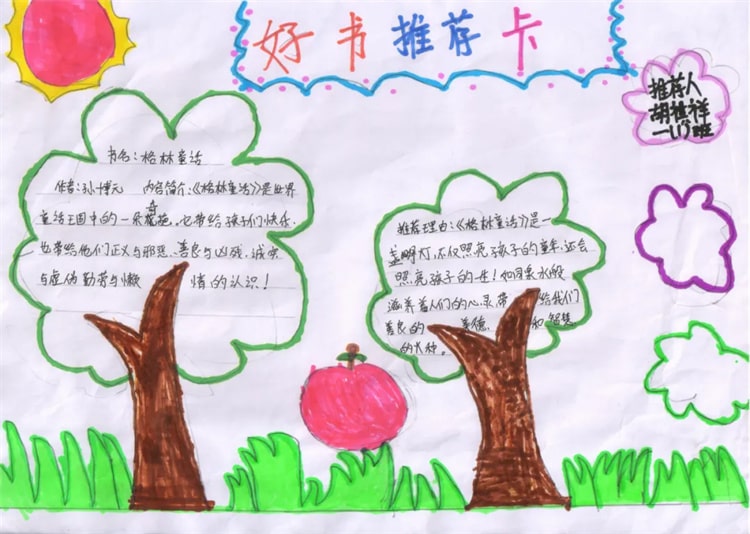 好书推荐卡
推荐人
胡 祥
一(1)班
书名:格林童话
作者:孙博元 内容简介:《格林童话》是世界
童话王国中的一朵奇葩。它带给孩子们快乐,
也带给他们正义与邪恶、善良与凶残,诚实
与虚伪勤劳与懒 情的认识!
推荐理由:《格林童话》是一
盏明灯,不仅照亮孩子的童年,还会
照亮孩子的一生!如同泉水般
滋养着人们的心灵,带 给我们
善良的 美德, 和智慧
的火种。